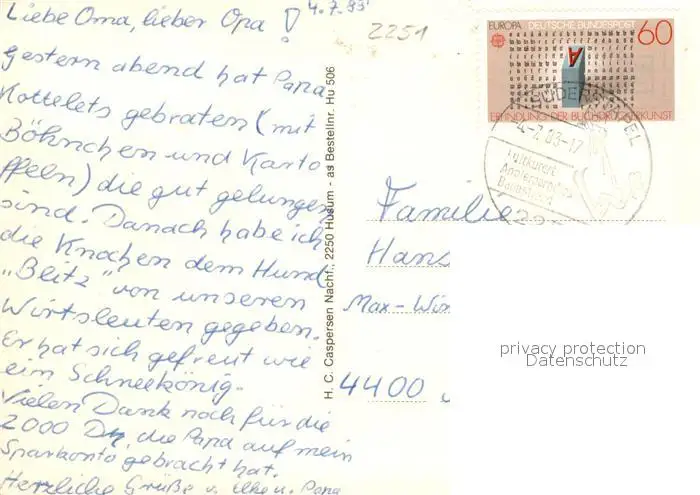 Liebe Oma, lieber Opa! 4.7.83
Gestern abend hat Papa
Kottelets gebraten (mit
Böhnchen und Karto
ffeln) die gut gelungen
sind. Danach habe ich
die Knochen dem Hund
„Blitz" von unseren
Wirtsleuten gegeben.
Er hat sich gefreut wie
ein Schneekönig.
Vielen Dank noch für die
2000 DM, die Papa auf mein
Sparkonto gebracht hat.
Herzliche Grüße v. Elke u. Papa
2251
H. C. Caspersen Nachf., 2250 Husum - as Bestellnr. Hu 506
EUROPA DEUTSCHE BUNDESPOST 60
ERFINDUNG DER BUCHDRUCKERKUNST
4.-7.83-17
Luftkurort
Familie
Hans
Max-Win
4400
privacy protection
Datenschutz